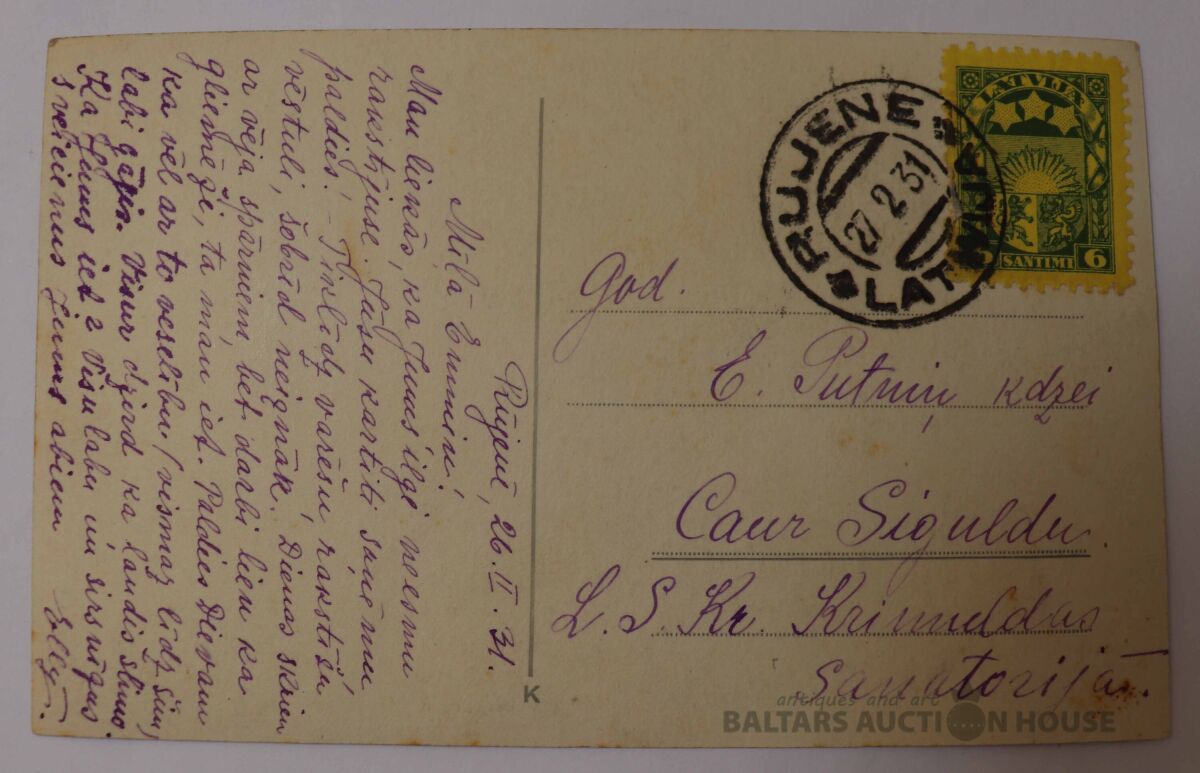 Rūjenē, 26.II.31.
Mīļā Emmiņ!
Man liekās, ka Jums ilgi neesmu
rakstījuse. Jūsu kartiti saņēmu
paldies! – Tiklīdz varēšu, rakstīšu
vēstuli, šobrīd neiznāk. Dienas skrien
ar vēja spārniem, bet darbi lien kā
gliemēži, tā man iet. Paldies Dievam
ka vēl ar to veselību (vismaz līdz šim)
labi gājis. Visur dzird ka ļaudis slimo.
Kā Jums iet? Visu labu un sirsnīgus
sveicienus Jums abiem
Elly.
God.
E. Putniņ kdzei
Caur Siguldu
L. S. Kr. Krimuldas
sanatorijā.
RUJENE
27 2 31
LATVIJA
LATVIJA
6 SANTIMI 6
K
antiques and art
BALTARS AUCTION HOUSE